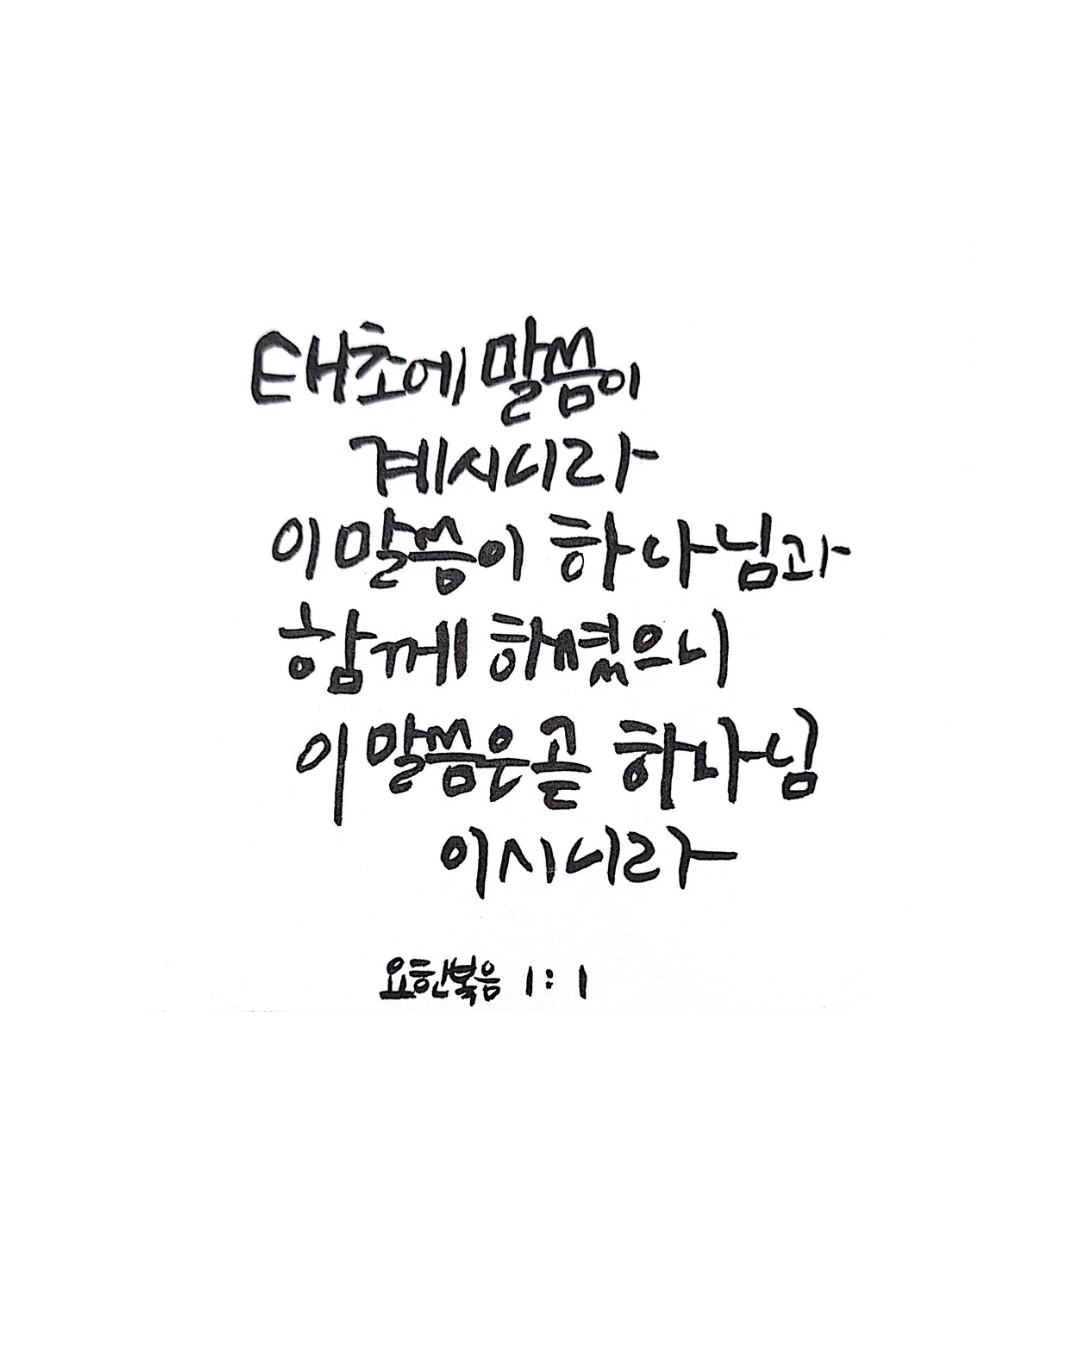 태초에 말씀이
계시니라
이 말씀이 하나님과
함께 하셨으니
이 말씀은 곧 하나님
이시니라
요한복음 1:1